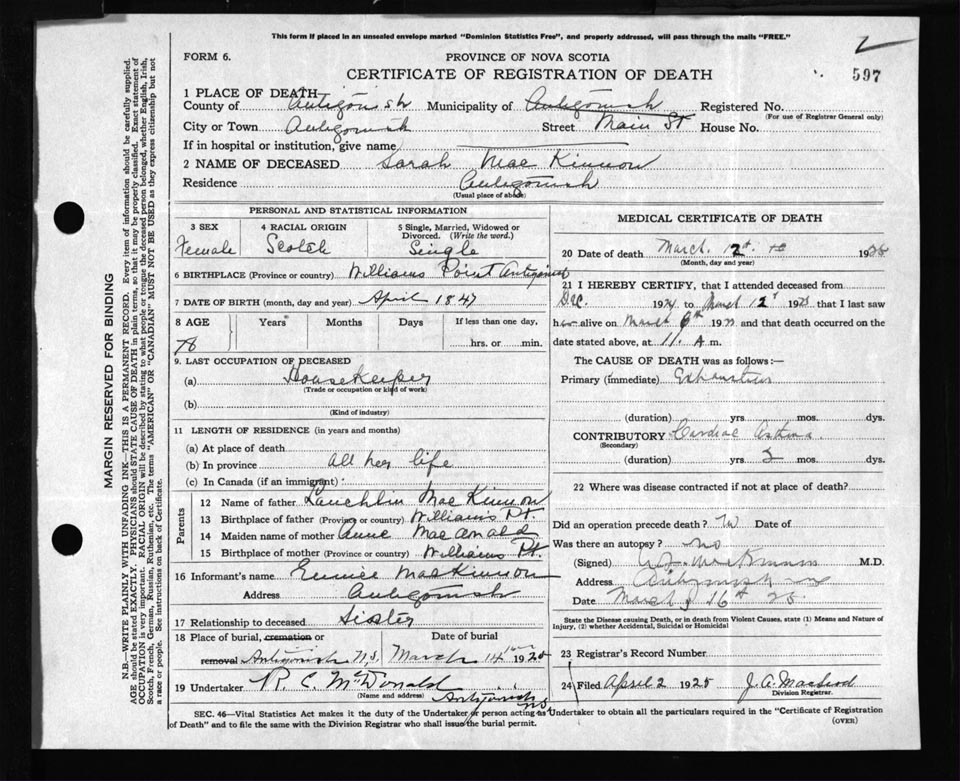 This form if placed in an unsealed envelope marked "Dominion Statistics Free", and properly addressed, will pass through the mails "FREE."
FORM 6.
PROVINCE OF NOVA SCOTIA
CERTIFICATE OF REGISTRATION OF DEATH
597
1 PLACE OF DEATH
County of Antigonish Municipality of Antigonish Registered No.
(For use of Registrar General only)
City or Town Antigonish Street Main St House No.
If in hospital or institution, give name
2 NAME OF DECEASED Sarah Mac Kinnon
Residence Antigonish
(Usual place of abode)
MARGIN RESERVED FOR BINDING
N.B.—WRITE PLAINLY WITH UNFADING INK—THIS IS A PERMANENT RECORD. Every item of information should be carefully supplied.
AGE should be stated EXACTLY. PHYSICIANS should STATE CAUSE OF DEATH in plain terms, so that it may be properly classified. Exact statement of
OCCUPATION is very important. RACIAL ORIGIN will be described by stating to what people or tongue the deceased person belonged, whether English, Irish,
Scotch, French, German, Russian, Ruthenian, etc. The terms "AMERICAN" or "CANADIAN" MUST NOT BE USED as they express citizenship but not
a race or people. See instructions on back of Certificate.
PERSONAL AND STATISTICAL INFORMATION
3 SEX
Female
4 RACIAL ORIGIN
Scotch
5 Single, Married, Widowed or
Divorced. (Write the word.)
Single
6 BIRTHPLACE (Province or country) Williams Point Antigonish
7 DATE OF BIRTH (month, day and year) April 1847
8 AGE Years Months Days If less than one day,
78 hrs. or min.
9. LAST OCCUPATION OF DECEASED
(a) Housekeeper
(Trade or occupation or kind of work)
(b)
(Kind of industry)
11 LENGTH OF RESIDENCE (in years and months)
(a) At place of death
(b) In province all her life
(c) In Canada (if an immigrant)
Parents
12 Name of father Lauchlin Mac Kinnon
13 Birthplace of father (Province or country) William's Pt.
14 Maiden name of mother Anne MacDonald
15 Birthplace of mother (Province or country) Williams Pt.
16 Informant's name Eunice MacKinnon
Address Antigonish
17 Relationship to deceased Sister
18 Place of burial, cremation or Date of burial
removal Antigonish N.S. March 14th 1925
19 Undertaker R. C. McDonald
(Name and address) Antigonish NS
MEDICAL CERTIFICATE OF DEATH
20 Date of death March 1925
(Month, day and year)
21 I HEREBY CERTIFY, that I attended deceased from
Dec. 1924 to March 12th 1925 that I last saw
her alive on March 1925 and that death occurred on the
date stated above, at 11 A m.
The CAUSE OF DEATH was as follows:—
Primary (immediate) Exhaustion
(duration) yrs mos. dys.
CONTRIBUTORY Cardiac Asthma
(Secondary)
(duration) yrs 2 mos. dys.
22 Where was disease contracted if not at place of death?
Did an operation precede death? Date of
Was there an autopsy? no
(Signed) M.D.
Address Antigonish
Date March 16th 25
State the Disease causing Death, or in death from Violent Causes, state (1) Means and Nature of
Injury, (2) whether Accidental, Suicidal or Homicidal
23 Registrar's Record Number
24 Filed April 2 1925 J. A. MacLeod
Division Registrar.
SEC. 46—Vital Statistics Act makes it the duty of the Undertaker or person acting as Undertaker to obtain all the particulars required in the "Certificate of Registration
of Death" and to file the same with the Division Registrar who shall issue the burial permit. (OVER)